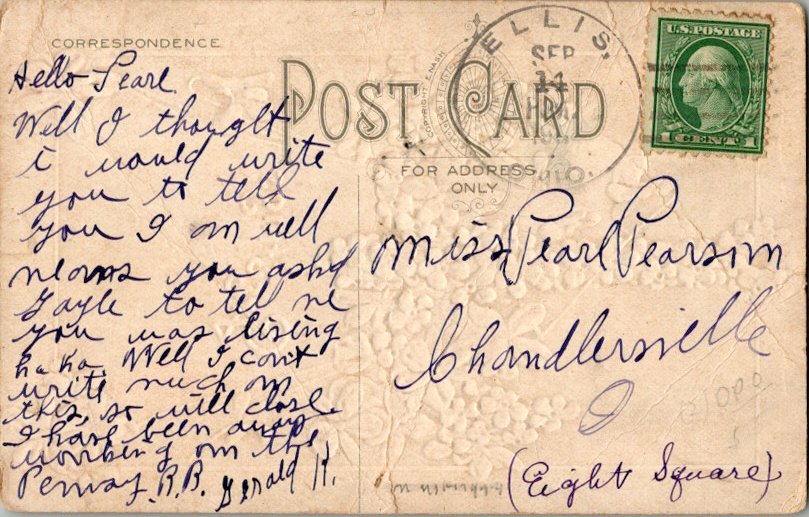 CORRESPONDENCE
Hello Pearl
Well I thought
i would write
you to tell
you I am well
you askd
Gayle to tell me
you was living
ha ha. Well I cant
write much on
this, so will close
I have been away
working on the
Pennsy R.R. Gerald K.
POST CARD
COPYRIGHT E. NASH
FOR ADDRESS
ONLY
ELLIS,
SEP
14
O.
U.S. POSTAGE
1 CENT 1
Miss Pearl Pearson
Chandlersville
O
(Eight Square)